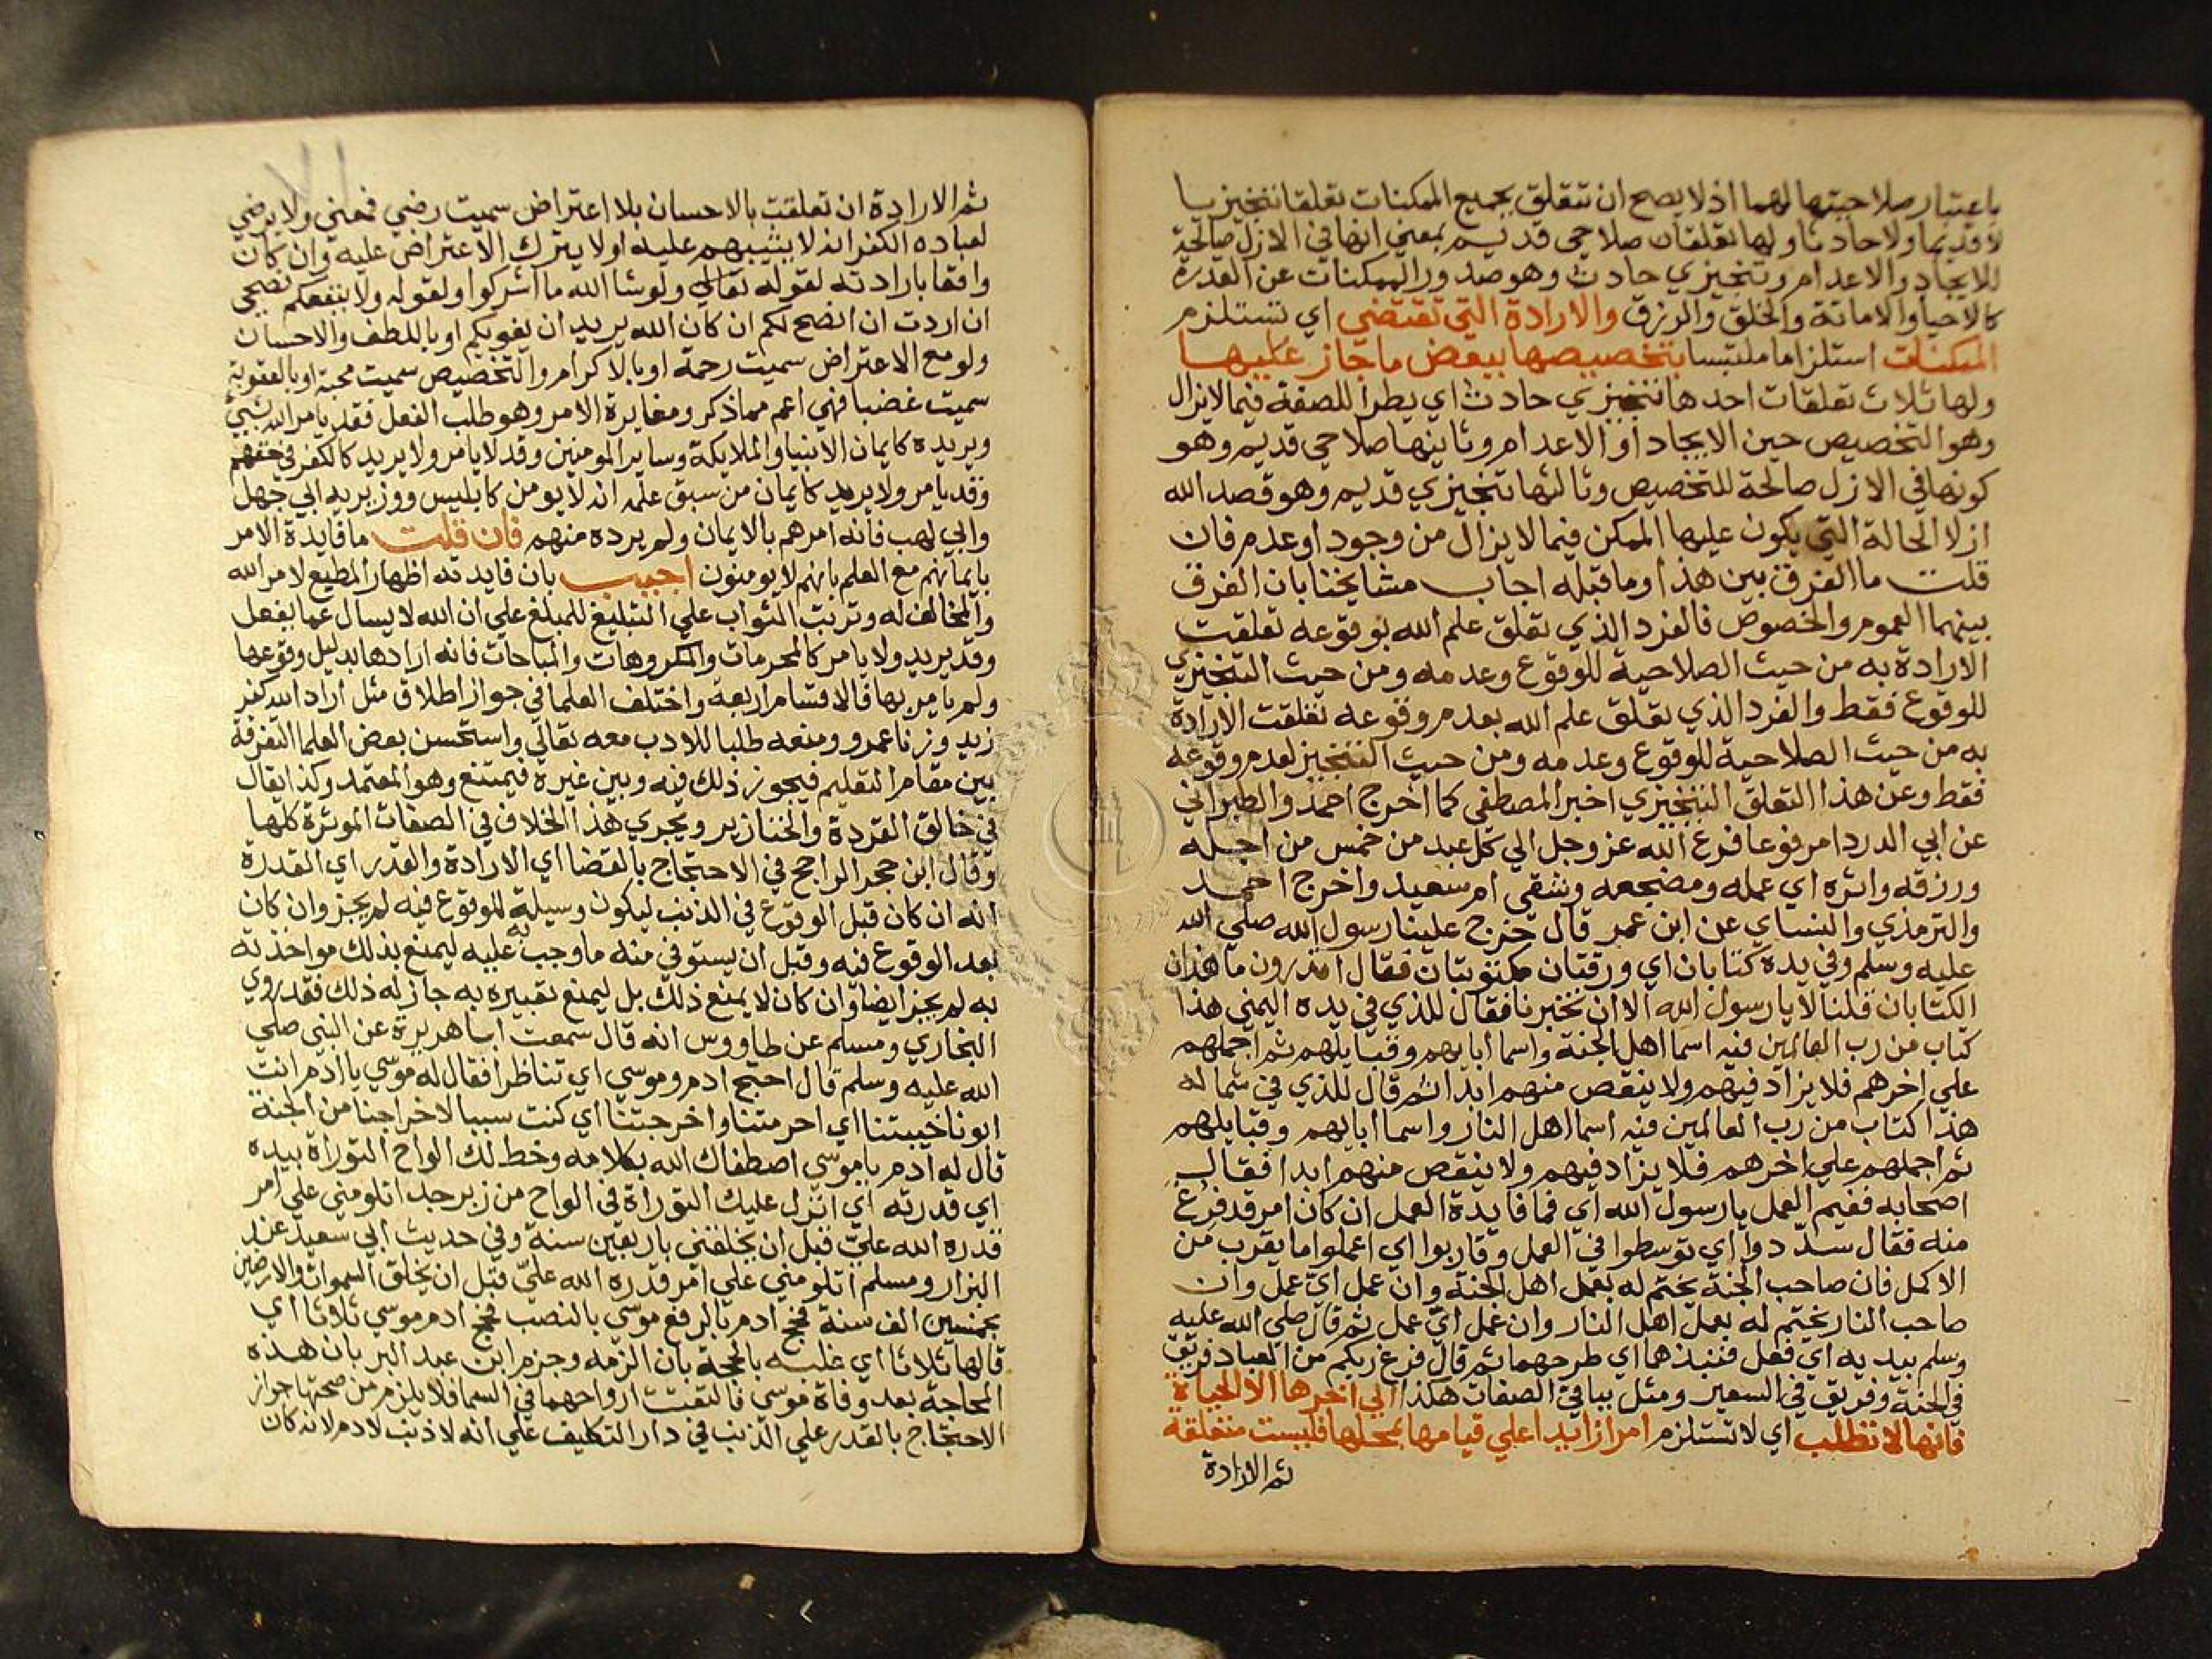 باعتبار صلاحيتها لهما اذ لا يصح ان تتعلق بجميع الممكنات تعلقا تنجيزيا
لا قديما ولا حادثا ولها تعلقان صلاحي قديم بمعني انها في الازل صالحة
للايجاد والاعدام وتنجيزي حادث وهو صدور الممكنات عن القدرة
كالاحيا والاماتة والخلق والرزق والارادة التي تقتضي اي تستلزم
الممكنات استلزاما ملتبسا بتخصيصها ببعض ما جاز عليها
ولها ثلاث تعلقات احدها تنجيزي حادث اي يطرا للصفة فيما لا يزال
وهو التخصيص حين الايجاد او الاعدام وثانيها صلاحي قديم وهو
كونها في الازل صالحة للتخصيص وثالثها تنجيزي قديم وهو قصد الله
ازلا الحالة التي يكون عليها الممكن فيما لا يزال من وجود او عدم فان
قلت ما الفرق بين هذا وما قبله اجاب مشايخنا بان الفرق
بينهما العموم والخصوص فالفرد الذي تعلق علم الله بوقوعه تعلقت
الارادة به من حيث الصلاحية للوقوع وعدمه ومن حيث التنجيزي
للوقوع فقط والفرد الذي تعلق علم الله بعدم وقوعه تعلقت الارادة
به من حيث الصلاحية للوقوع وعدمه ومن حيث التنجيز لعدم وقوعه
فقط وعن هذا التعلق التنجيزي اخبر المصطفي كما اخرج احمد والطبراني
عن ابي الدردا مرفوعا فرغ الله عز وجل الي كل عبد من خمس من اجله
ورزقه واثره اي عمله ومضجعه وشقي ام سعيد واخرج احمد
والترمذي والنساي عن ابن عمر قال خرج علينا رسول الله صلي الله
عليه وسلم وفي يده كتابان اي ورقتان مكتوبتان فقال اتدرون ما هذان
الكتابان قلنا لا يا رسول الله الا ان تخبرنا فقال للذي في يده اليمني هذا
كتاب من رب العالمين فيه اسما اهل الجنة واسما ابايهم وقبايلهم ثم اجملهم
علي اخرهم فلا يزاد فيهم ولا ينقص منهم ابدا ثم قال للذي في شماله
هذا كتاب من رب العالمين فيه اسما اهل النار واسما ابايهم وقبايلهم
ثم اجملهم علي اخرهم فلا يزاد فيهم ولا ينقص منهم ابدا فقال
اصحابه ففيم العمل يا رسول الله اي فما فايدة العمل ان كان امر قد فرغ
منه فقال سدّدوا اي توسطوا في العمل وقاربوا اي اعملوا ما يقرب من
الاكمل فان صاحب الجنة يختم له بعمل اهل الجنة وان عمل ايّ عمل وان
صاحب النار يختم له بعمل اهل النار وان عمل ايّ عمل ثم قال صلي الله عليه
وسلم بيديه اي فعل فنبذهما اي طرحهما ثم قال فرغ ربكم من العباد فريق
في الجنة وفريق في السعير ومثل بباقي الصفات هكذا الي اخرها الا الحياة
فانها لا تطلب اي لا تستلزم امرا زايدا علي قيامها بمحلها فليست متعلقة
ثم الارادة
ثم الارادة ان تعلقت بالاحسان بلا اعتراض سميت رضي فمعني ولا يرضي
لعباده الكفر انه لا يثيبهم عليه او لا يترك الاعتراض عليه وان كان
واقعا بارادته لقوله تعالي ولو شا الله ما اشركوا ولقوله ولا ينفعكم نصحي
ان اردت ان انصح لكم ان كان الله يريد ان يغويكم او باللطف والاحسان
ولو مع الاعتراض سميت رحمة او بالاكرام والتخصيص سميت محبة او بالعقوبة
سميت غضبا فهي اعم مما ذكر ومغايرة الامر وهو طلب الفعل فقد يامر الله بشي
ويريده كايمان الانبيا والملايكة وساير المومنين وقد لا يامر ولا يريد كالكفر في حقهم
وقد يامر ولا يريد كايمان من سبق علمه انه لا يومن كابليس ووزيريه ابي جهل
وابي لهب فانه امرهم بالايمان ولم يرده منهم فان قلت ما فايدة الامر
بايمانهم مع العلم بانهم لا يومنون اجيب بان فايدته اظهار المطيع لامر الله
والمخالف له وترتب الثواب علي التبليغ للمبلغ علي ان الله لا يسال عما يفعل
وقد يريد ولا يامر كالمحرمات والمكروهات والمباحات فانه ارادها بدليل وقوعها
ولم يامر بها فالاقسام اربعة واختلف العلما في جواز اطلاق مثل اراد الله كفر
زيد وزنا عمرو ومنعه طلبا للادب معه تعالي واستحسن بعض العلما التفرقة
بين مقام التعليم فيجوز ذلك فيه وبين غيره فيمتنع وهو المعتمد وكذا يقال
في خالق القردة والخنازير ويجري هذا الخلاف في الصفات الموثرة كلها
وقال ابن حجر الراجح في الاحتجاج بالقضا اي الارادة والقدر اي القدرة
انه ان كان قبل الوقوع في الذنب ليكون وسيلة للوقوع فيه لم يجز وان كان
بعد الوقوع فيه وقبل ان يستوفي منه ما وجب به عليه ليمنع بذلك مواخذته
به لم يجز ايضا وان كان لا يمنع ذلك بل ليمنع تعييره به جاز له ذلك فقد روي
البخاري ومسلم عن طاووس انه قال سمعت ابا هريرة عن النبي صلي
الله عليه وسلم قال احتج ادم وموسي اي تناظرا فقال له موسي يا ادم انت
ابونا خيبتنا اي احرمتنا واخرجتنا اي كنت سببا لاخراجنا من الجنة
قال له ادم يا موسي اصطفاك الله بكلامه وخط لك الواح التوراة بيده
اي قدرته اي انزل عليك التوراة في الواح من زبرجد اتلومني علي امر
قدره الله عليّ قبل ان يخلقني باربعين سنة وفي حديث ابي سعيد عند
البزار ومسلم اتلومني علي امر قدره الله عليّ قبل ان يخلق السموات والارضين
بخمسين الف سنة فحج ادم بالرفع موسي بالنصب فحج ادم موسي ثلاثا اي
قالها ثلاثا اي غلبه بالحجة بان الزمه وجزم ابن عبد البر بان هذه
المحاجة بعد وفاة موسي فالتقت ارواحهما في السما فلا يلزم من صحتها جواز
الاحتجاج بالقدر علي الذنب في دار التكليف علي انه لا ذنب لادم لانه كان